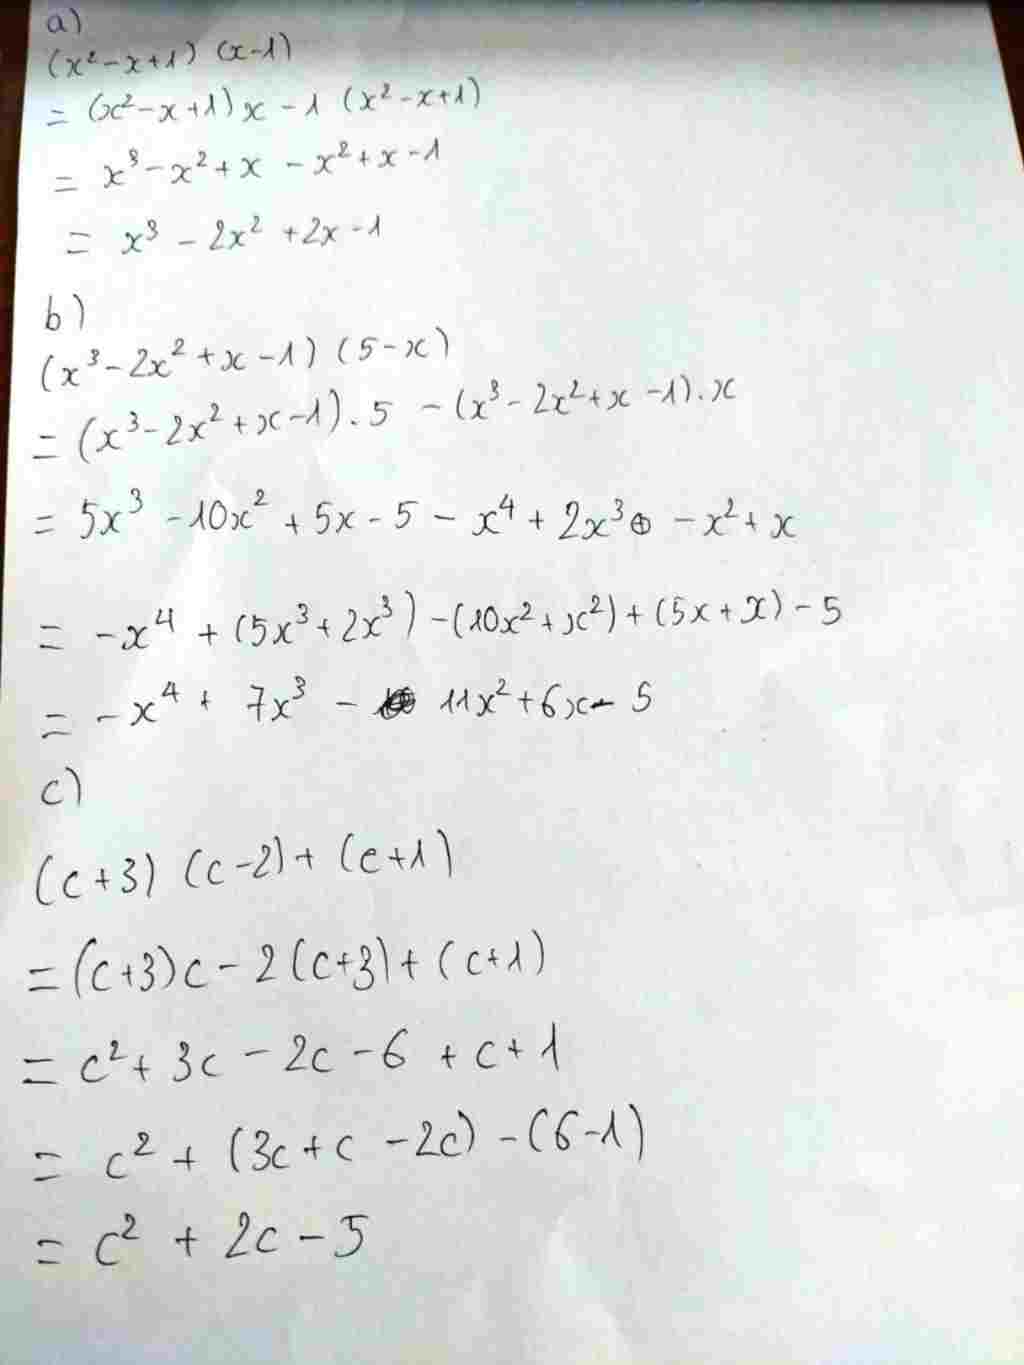 a)
(x² - x + 1) (x - 1)
= (x² - x + 1) x - 1 (x² - x + 1)
= x³ - x² + x - x² + x - 1
= x³ - 2x² + 2x - 1
b)
(x³ - 2x² + x - 1) (5 - x)
= (x³ - 2x² + x - 1) . 5 - (x³ - 2x² + x - 1) . x
= 5x³ - 10x² + 5x - 5 - x⁴ + 2x³ - x² + x
= - x⁴ + (5x³ + 2x³) - (10x² + x²) + (5x + x) - 5
= - x⁴ + 7x³ - 11x² + 6x - 5
c)
(c + 3) (c - 2) + (c + 1)
= (c + 3) c - 2 (c + 3) + (c + 1)
= c² + 3c - 2c - 6 + c + 1
= c² + (3c + c - 2c) - (6 - 1)
= c² + 2c - 5